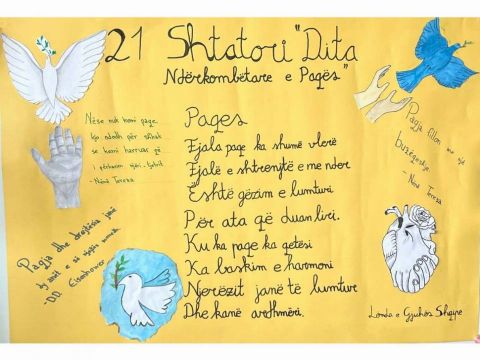 21 Shtatori "Dita
Ndërkombëtare e Paqës"
Nëse nuk kemi paqe,
kjo ndodh për shkak
se kemi harruar që
i përkasim njëri-tjetrit.
-Nënë Tereza
Paqja fillon me një
buzëqeshje.
- Nënë Tereza
Paqes
Fjala paqe ka shumë vlerë
Fjalë e shtrenjtë e me nder
Është gëzim e lumturi
Për ata që duan liri.
Ku ka paqe ka qetësi
Ka bashkim e harmoni
Njerëzit janë të lumtur
Dhe kanë ardhmëri.
Paqja dhe drejtësia janë
dy anët e së njëjtës monedhë.
-D.D. Eisenhower
Lënda e Gjuhës Shqipe